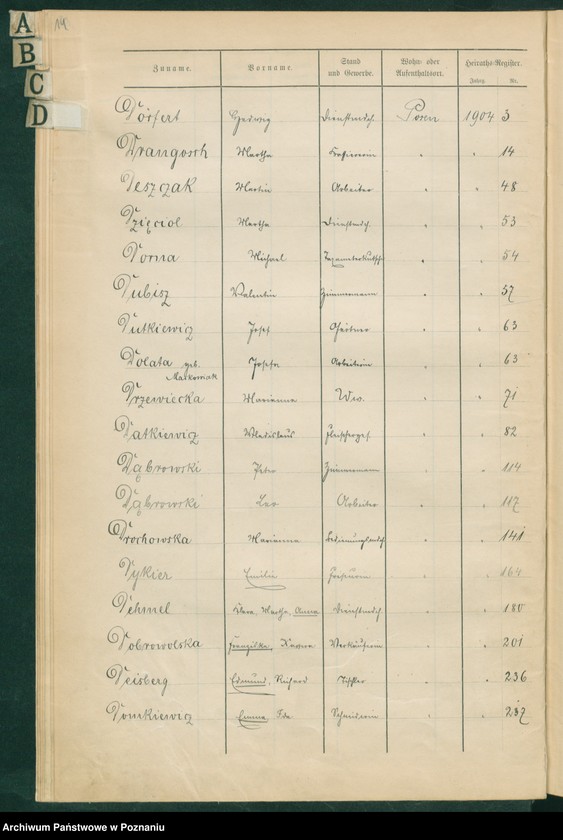 A
B
C
D
14
Zuname. Vorname. Stand und Gewerbe. Wohn- oder Aufenthaltsort. Heiraths-Register. Jahrg. Nr.
Dörfert Hedwig Dienstmdch. Posen 1904 3
Drangosch Martha " " 14
Deszczak Martin Arbeiter " " 48
Dzięciol Martha Dienstmdch. " " 53
Dorna Michael " " 54
Dubisz Valentin Zimmermann " " 57
Dutkiewicz Josef " " 63
Dolata geb. Markowiak Josefa Arbeiterin " " 63
Drzewiecka Marianna Ww. " " 71
Datkiewicz Wladislaus Fleischerges. " " 82
Dąbrowski Peter Zimmermann " " 114
Dąbrowski Leo Arbeiter " " 117
Drochowska Marianna " " 141
Dykier Emilie " " 164
Dehmel Clara, Martha, Anna Dienstmdch " " 180
Dobrowolska Franziska, Verkäuferin " " 201
Deisberg Edmund, Richard Tischler " " 236
Domkiewicz Emma Ida Schneiderin " " 237
Archiwum Państwowe w Poznaniu